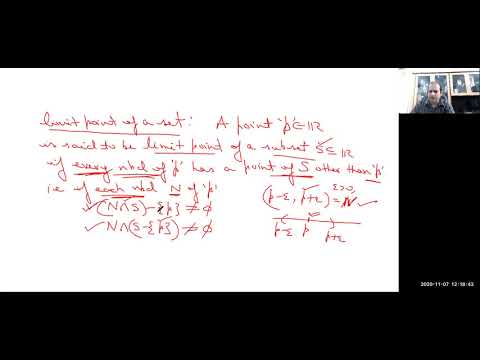 limit point of a set: A point 'p' ∈ ℝ
is said to be limit point of a subset S ⊆ ℝ
if every nbd of 'p' has a point of S other than 'p'
i.e. if each nbd N of 'p'
(p-ε, p+ε) = N ✓
ε>0,
✓ (N∩S) - {p} ≠ ϕ
✓ N∩(S-{p}) ≠ ϕ
p-ε p p+ε
2020-11-07 12:18:43